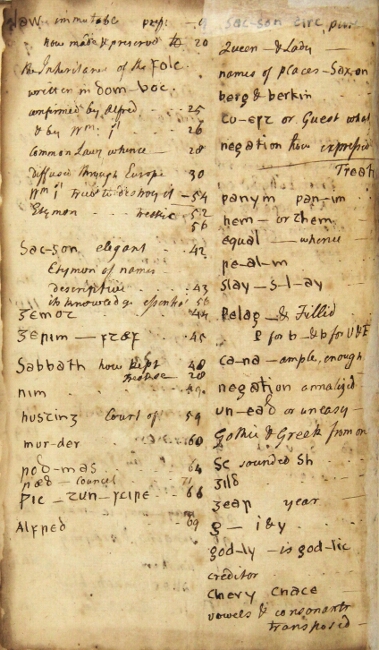 Law immutable pref: -9
how made & preserved to 20
the Inheritance of the Folc.
written in dom boc.
confirmed by Alfred - 25
& by Wm. 1st 26
Common Law whence - 28
diffused through Europe 30
Wm 1st tried to destroy it - 54
Etymon - - treatise - 52
56
Sac-son elegant - 42
Etymon of names
descriptive - - 43
its knowledge 56
ᵹemot - 44
- 45
Sabbath how kept 48
treatise 28
nim
husting Court of - 59
mur-der - 60
pod-mas 64
ræd - council 71
66
Alfred - 69
Sac-son
Queen - & Lady
names of places - Saxon
berg & berkin
or Guest what
negation how expressed
Treat
panym pan-im
hem - or them
equal - whence
pe-al-m
slay - s-l-ay
Pelag - & Fillid
f for b - & b for U & F
ca-na - ample, enough
negation annalized
un-ead or uneasy -
Gothic & Greek from on
Sc sounded Sh
ᵹild
ᵹear year
g - i & y
god-ly - is god-lic
creditor
Chery Cnace
vowels & consonants
transposed -